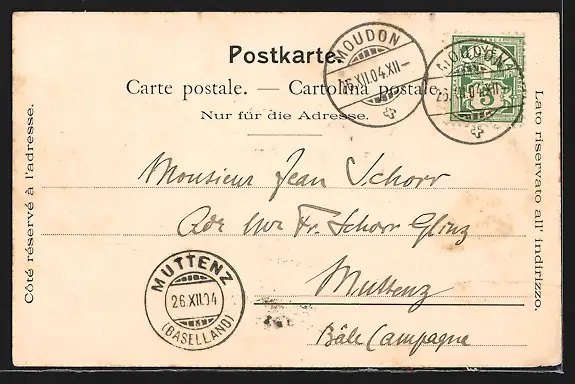 Postkarte.
Carte postale. — Cartolina postale
Nur für die Adresse.
Côté réservé à l'adresse.
Lato riservato all' indirizzo.
MOUDON
25.XII.04.XII—
MOUDON
25.XII.04.XII—
5
Monsieur Jean Schorr
Adr Fr. Schorr Glinz
Muttenz
Bâle Campagne
MUTTENZ
26.XII.04
(BASELLAND)